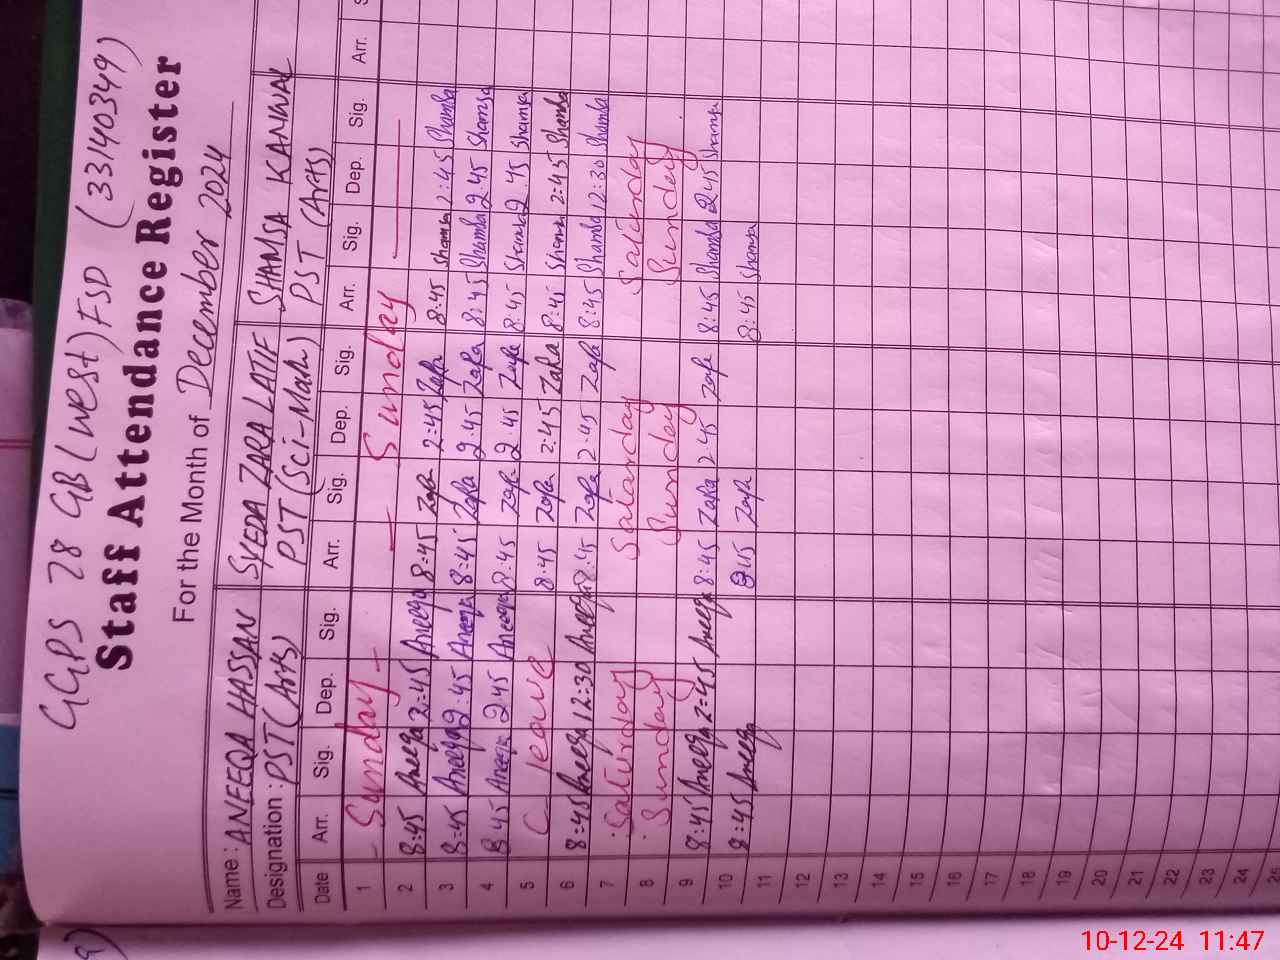 GGPS 28 GB (West) FSD (33140349)
Staff Attendance Register
For the Month of December 2024
Name : ANEEQA HASSAN SYEDA ZARA LATIF SHAMSA KANWAL
Designation : PST (Arts) PST (Sci-Math) PST (Arts)
Date Arr. Sig. Dep. Sig. Arr. Sig. Dep. Sig. Arr. Sig. Dep. Sig. Arr.
1 - Sunday - - Sunday -
2 8:45 Aneeqa 2:45 Aneeqa 8:45 Zara 2:45 Zara 8:45 Shamsa 2:45 Shamsa
3 8:45 Aneeqa 2:45 Aneeqa 8:45 Zara 2:45 Zara 8:45 Shamsa 2:45 Shamsa
4 8:45 Aneeqa 2:45 Aneeqa 8:45 Zara 2:45 Zara 8:45 Shamsa 2:45 Shamsa
5 C-leave 8:45 Zara 2:45 Zara 8:45 Shamsa 2:45 Shamsa
6 8:45 Aneeqa 12:30 Aneeqa 8:45 Zara 2:45 Zara 8:45 Shamsa 12:30 Shamsa
7 Saturday Saturday Saturday
8 Sunday Sunday Sunday
9 8:45 Aneeqa 2:45 Aneeqa 8:45 Zara 2:45 Zara 8:45 Shamsa 2:45 Shamsa
10 8:45 Aneeqa Zara 8:45 Shamsa
11
12
13
14
15
16
17
18
19
20
21
22
23
24
10-12-24 11:47